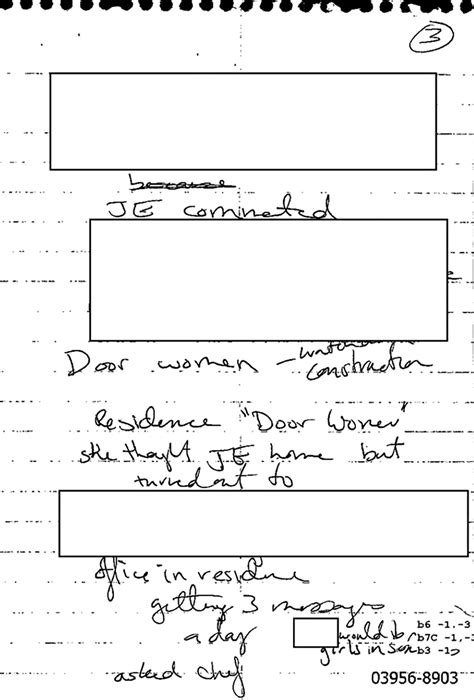 3
because
JE commented
Door women - watching
construction
Residence "Door Women"
she thought JE home but
turned out to
office in residence
getting 3 messages
a day would br
b6 -1,-3
b7C -1,-
girls in
b3 -1
asked chef
03956-8903